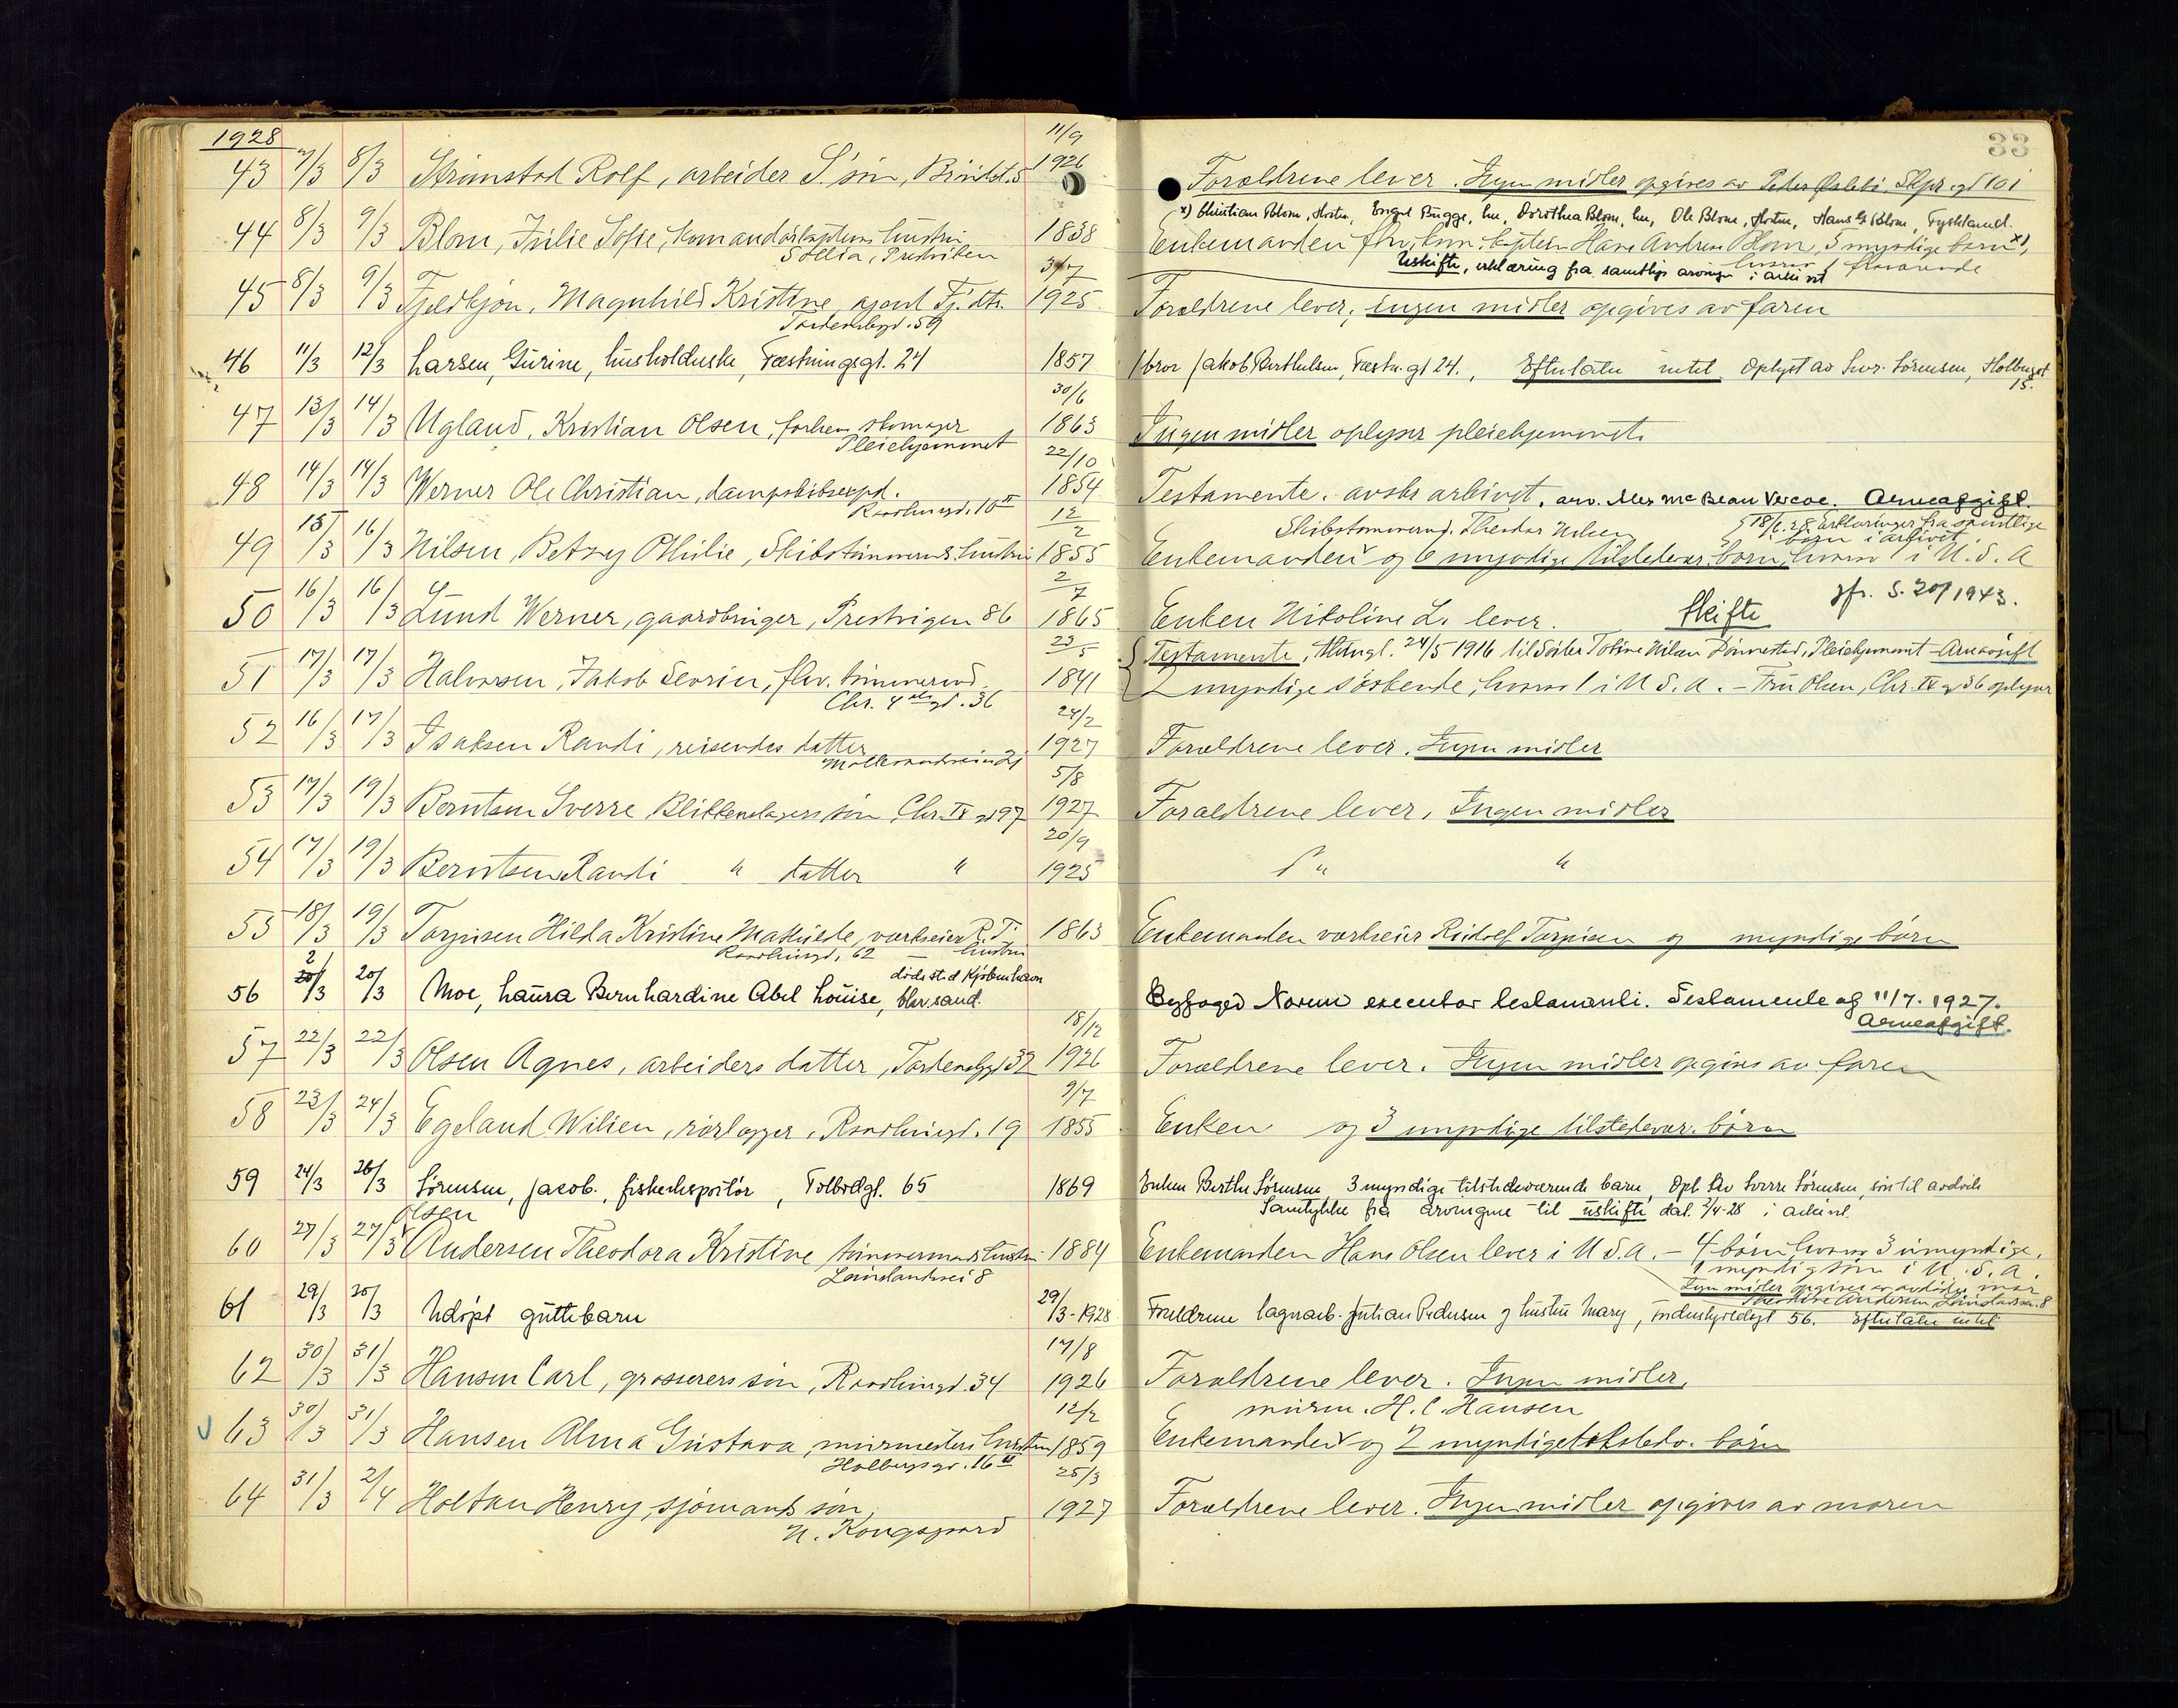 1928
33
43 7/3 8/3 Strimstad Rolf, arbeider S. søn, Bindst. 5 11/9 1926 Forældrene lever. Ingen midler opgives av Peter
44 8/3 9/3 Blom, Julie Sofie, komandørkapteins hustru 1838
Sollia, Prestviken
x) Christian Blom, Horten, Engel Bugge, her, Dorothea Blom, her, Ole Blom, Horten, Hans G Blom, Tyskland.
Enkemanden fhv. kom. kaptein Hans Andreas Blom, 5 myndige barn x),
hvorav 1 fraværende
Uskifte, erklæring fra samtlige arvinger i arkivet
45 8/3 9/3 Fjeldkjøn, Magnhild Kristine, agent Fj. dtr. 3/7 1925 Forældrene lever, ingen midler opgives av faren
Tordenskgd. 59
46 11/3 12/3 Larsen, Gurine, husholderske, Fæstningsgt. 24 1857 1 bror Jakob Berthelsen, Fæstn. gt 24., Efterlater intet. Oplyst av Sver. Sörensen, Holbergsgt
15.
47 13/3 14/3 Ugland, Kristian Olsen, forhen skomager 30/6 1863 Ingen midler oplyser pleiehjemmet.
Pleiehjemmet
48 14/3 14/3 Werner Ole Christian, dampskibsexpd. 22/10 1854 Testamente. avskr arkivet. arv. Alex McBean Vercoe. Arveafgift.
Raadhusgd. 10 II
49 15/3 16/3 Nilsen, Betzy Othilie, Skibstømmerm's hustru 12/2 1855
Skibstømmermd. Theodor Nilsen
18/6.28 Erklæringer fra samtlige
børn i arkivet
Enkemanden og 6 myndige tilstedevær. børn, hvorav 1 i U.S.A
50 16/3 16/3 Lund Werner, gaardbruger, Prestvigen 86 2/7 1865 Enken Nikoline L. lever. Skifte jfr. S. 20/1943.
51 17/3 17/3 Halvorsen, Jakob Severin, fhv. tømmermd. 23/5 1841
Chr. 4 des gd. 36
Testamente, thingl. 24/5 1916 til Søster Tobine Nilsen Rønnestad, Pleiehjemmet – Arveavgift
2 myndige søsbende, hvorav 1 i U.S.A. – Fru Olsen, Chr. IV g 36 oplyser
52 16/3 17/3 Isaksen Randi, reisendes datter 24/2 1927 Forældrene lever. Ingen midler
21
53 17/3 19/3 Berntsen Sverre Blikkenslagers søn, Chr. IV gd 97 5/8 1927 Forældrene lever, Ingen midler
54 17/3 19/3 Berntsen Randi " datter " 20/9 1925 " "
55 18/3 19/3 Torgrisen Hilda Kristine Mathilde, værkseier R. T. 1863 Enkemanden værkseier Rudolf Torgrisen og myndige børn
Raadhusgd. 62 – hustru
56 2/3 20/3 Moe, Laura Bernhardine Abel Louise, Chr.sand. dødssted Kjøbenhavn
Byfoged Norum executor testamenti. Testamente af 11/7. 1927.
Arveafgift.
57 22/3 22/3 Olsen Agnes, arbeiders datter, Tordenskgd 32 18/12 1926 Forældrene lever. Ingen midler opgives av faren
58 23/3 24/3 Egeland Wilien, rørlægger, Raadhusgd. 19 9/7 1855 Enken og 3 myndige tilstedevær. børn
59 24/3 26/3 Sörensen, Jacob., fiskeeksportör, Tolbodgt. 65 1869 Enken Berthe Sörensen, 3 myndige tilstedeværende barn, Opl av Sverre Sörensen, sön til avdøde
Samtykke fra arvingene til uskifte dat. 2/4-28 i arkivet.
60 27/3 27/3 Olsen Andersen Theodora Kristine tømmermands hustru 1884 Enkemanden Hans Olsen lever i U.S.A. – 4 børn hvorav 3 umyndige.
1 myndig søn i U.S.A.
Ingen midler opgives av avdødes mor
61 29/3 30/3 Udöpt guttebarn 29/3-1928 Foreldrene lagerarb. Julian Pedersen og hustru Mary, 56. Efterlater intet
62 30/3 31/3 Hansen Carl, grosserers søn, Raadhusgd. 34 17/8 1926 Forældrene lever. Ingen midler,
63 30/3 31/3 Hansen Alma Gustava, murmesters hustru 12/2 1859
Holbergsgr. 16 III
murm. H. C. Hansen
Enkemanden og 2 myndige tilstedv. børn
64 31/3 2/4 Holtan Henry, sjømands søn, 25/3 1927 Forældrene lever. Ingen midler opgives av moren
N. Kongsgaard